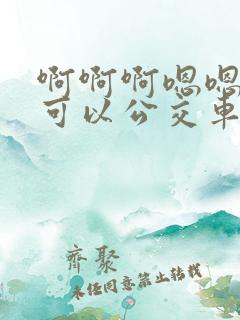 啊啊啊嗯嗯
可以公交车
齐聚
未经同意禁止转载